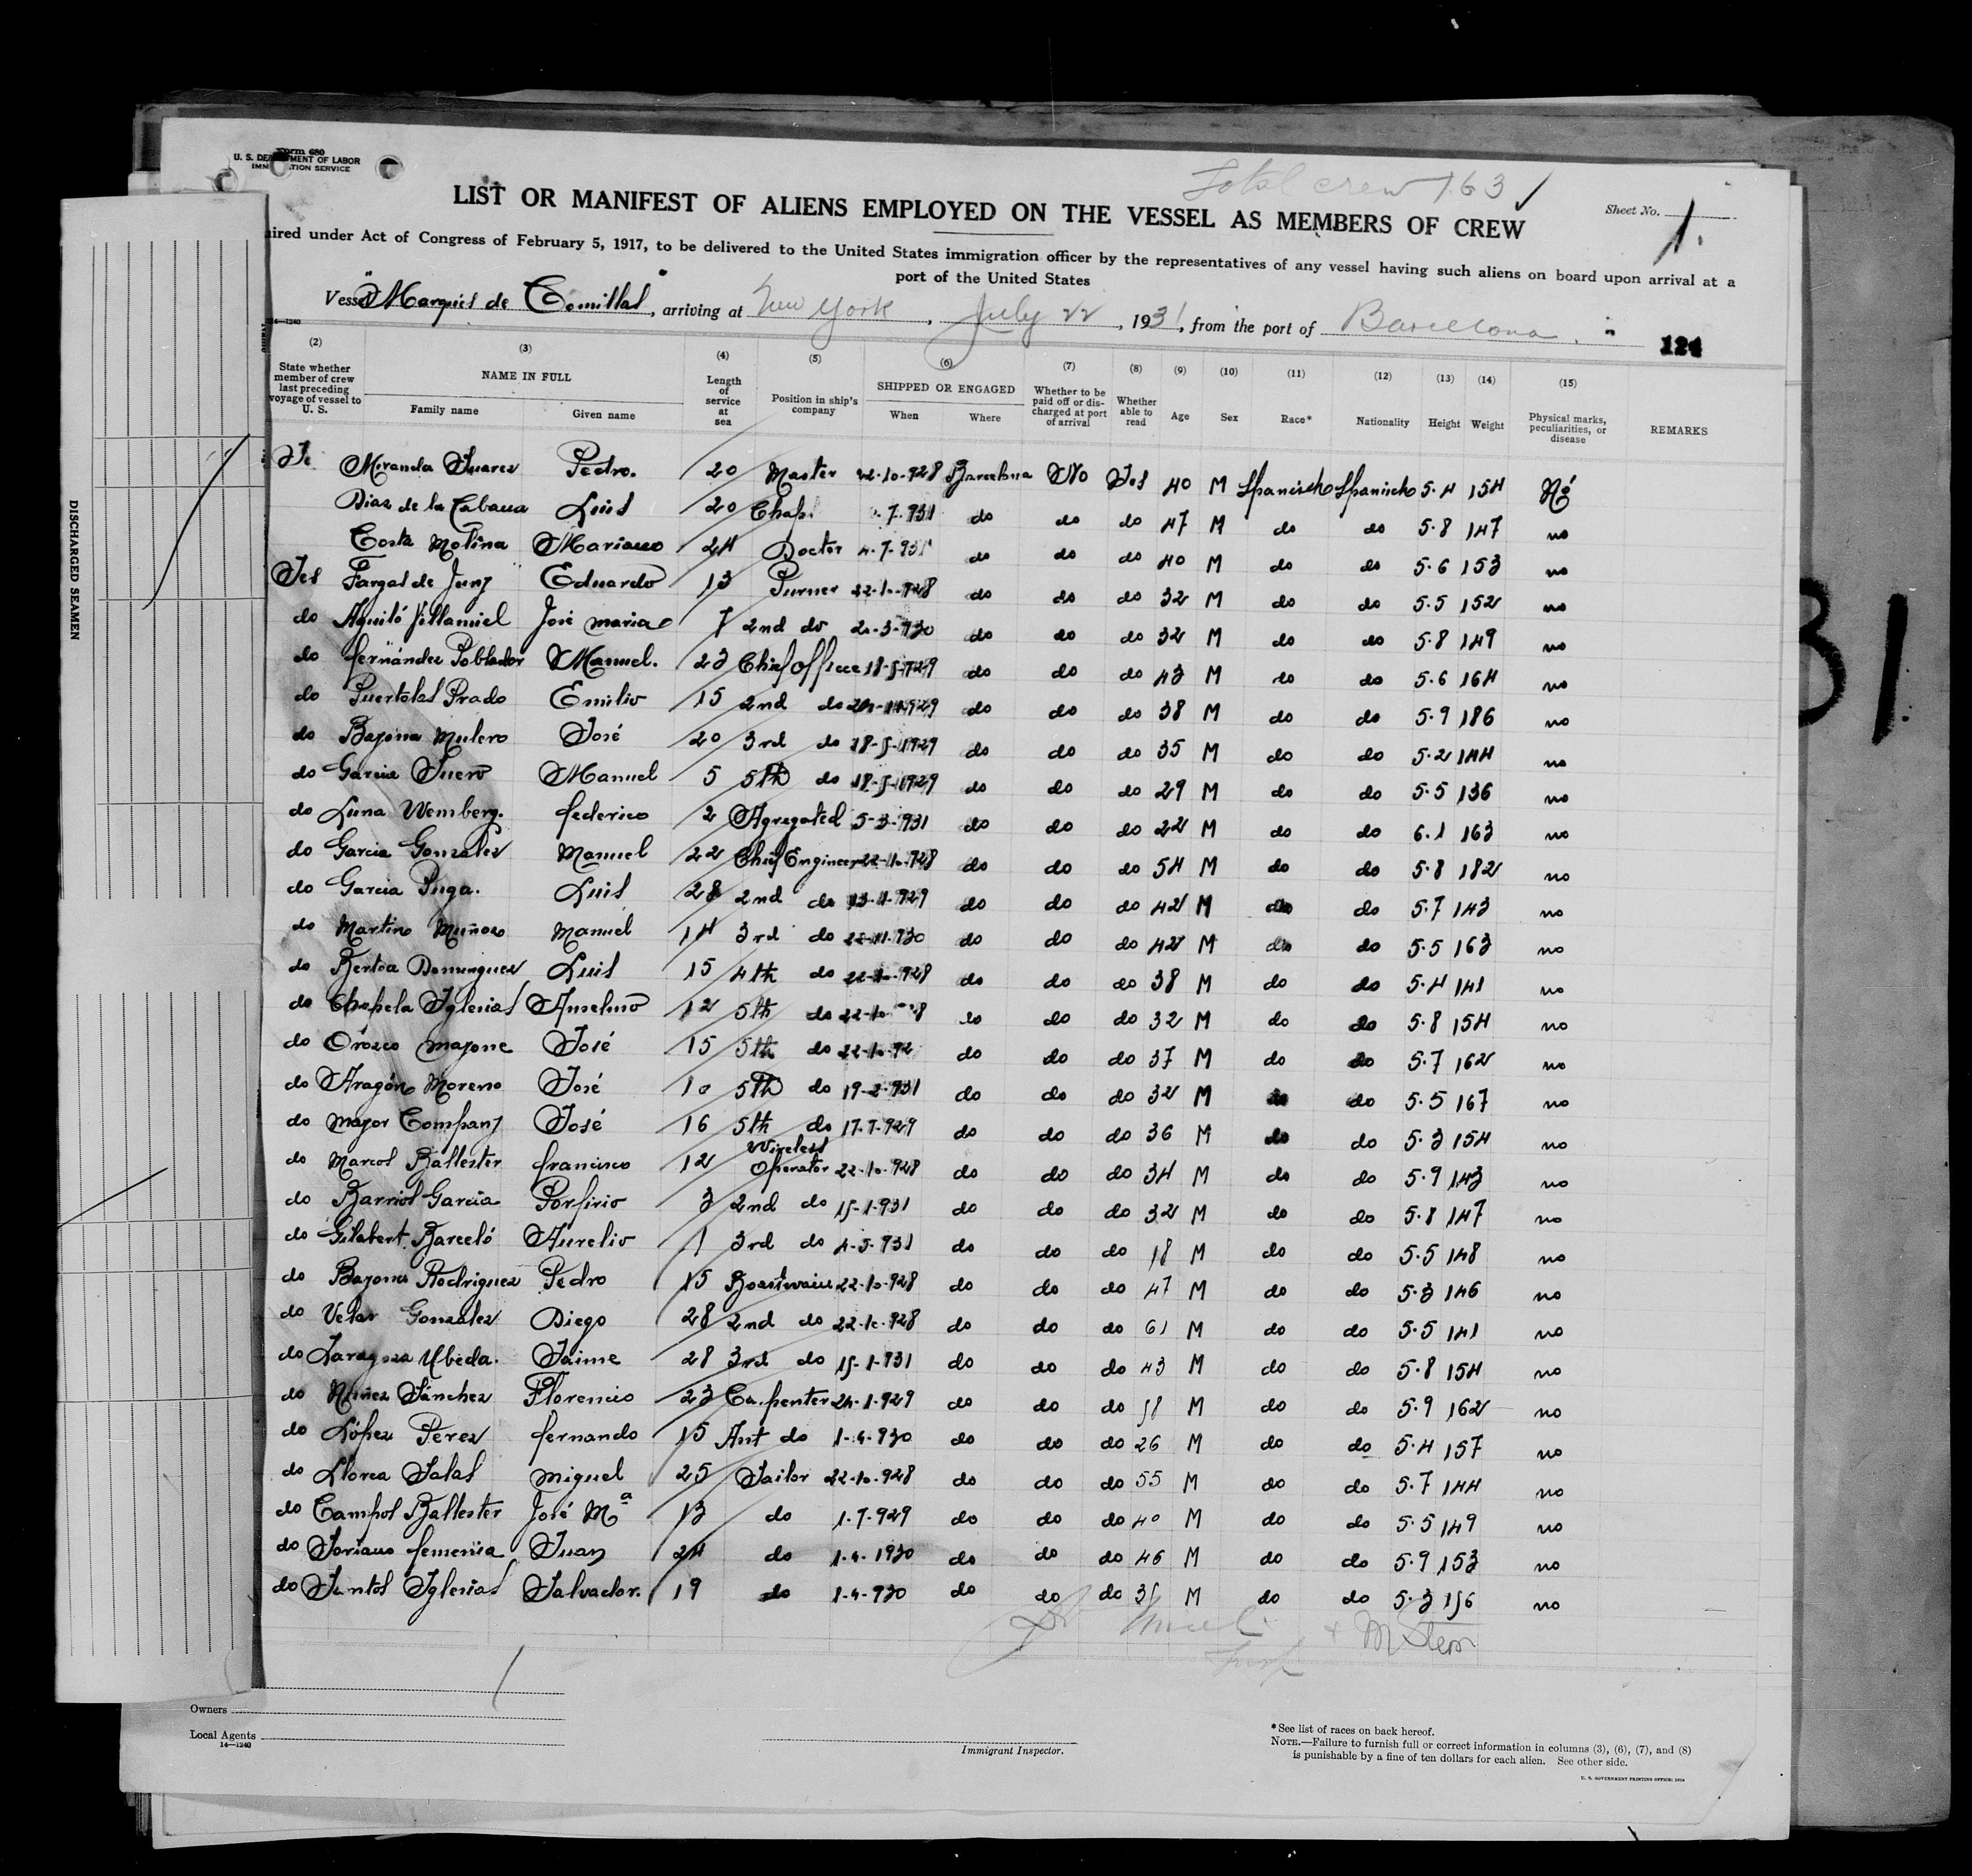 Form 680
U. S. DEPARTMENT OF LABOR
IMMIGRATION SERVICE
Total crew 163 ✓
LIST OR MANIFEST OF ALIENS EMPLOYED ON THE VESSEL AS MEMBERS OF CREW
Sheet No. 1.
ired under Act of Congress of February 5, 1917, to be delivered to the United States immigration officer by the representatives of any vessel having such aliens on board upon arrival at a
port of the United States
Vessel "Marqués de Comillas", arriving at New York, July 22, 1931, from the port of Barcelona.
124
14—1240
(2) (3) (4) (5) (6) (7) (8) (9) (10) (11) (12) (13) (14) (15)
State whether member of crew last preceding voyage of vessel to U. S. NAME IN FULL Family name Given name Length of service at sea Position in ship's company SHIPPED OR ENGAGED When Where Whether to be paid off or discharged at port of arrival Whether able to read Age Sex Race* Nationality Height Weight Physical marks, peculiarities, or disease REMARKS
Miranda Suarez Pedro. 20 Master 22-10-928 Barcelona No Yes 40 M Spanisch Spanisch 5.4 154 No
Diaz de la Cabana Luis 20 7.931 do do do 47 M do do 5.8 147 no
Costa Molina Mariano 24 Doctor 4.7.931 do do do 40 M do do 5.6 153 no
Yes Fargas de Juny Eduardo 13 Purser 22-10-928 do do do 32 M do do 5.5 152 no
do Aguiló Villamiel José maria 7 2nd do 20-3-930 do do do 32 M do do 5.8 149 no
do fernández Poblador Manuel. 23 Chief office 18-5-929 do do do 43 M do do 5.6 164 no
do Puertolas Prado Emilio 15 2nd do 929 do do do 38 M do do 5.9 186 no
do Bayona Mulero José 20 3rd do 18-5-1929 do do do 35 M do do 5.2 144 no
do Garcia Suero Manuel 5 5th do 18-5-1929 do do do 29 M do do 5.5 136 no
do Luna Wemberg. federico 2 Agregated 5-3-931 do do do 22 M do do 6.1 163 no
do Garcia Gonzalez Manuel 22 Chief Engineer 22-10-928 do do do 54 M do do 5.8 182 no
do Garcia Puga. Luis 28 2nd do 13-11-929 do do do 42 M do do 5.7 143 no
do Martino Muñoz Manuel 14 3rd do 930 do do do 42 M do do 5.5 163 no
do Bertoa Dominguez Luis 15 4th do 22-10-928 do do do 38 M do do 5.4 141 no
do Chapela Iglesias Anselmo 12 5th do 22-10- 8 do do do 32 M do do 5.8 154 no
do Orozco mayone José 15 5th do 22-10-92 do do do 37 M do do 5.7 162 no
do Aragón Moreno José 10 5th do 19-2-931 do do do 32 M do do 5.5 167 no
do Mayor Company José 16 5th do 17-7-929 do do do 36 M do do 5.3 154 no
do Marcos Ballester francisco 12 Wireless Operator 22-10-928 do do do 34 M do do 5.9 143 no
do Barrios Garcia Porfirio 3 2nd do 15-1-931 do do do 32 M do do 5.8 147 no
do Gilabert Barceló Aurelio 1 3rd do 4-5-931 do do do 18 M do do 5.5 148 no
do Bayona Rodriguez Pedro 15 Boastwain 22-10-928 do do do 47 M do do 5.3 146 no
do Velar Gonzalez Diego 28 2nd do 22-10-928 do do do 61 M do do 5.5 141 no
do Zaragoza Ubeda. Jaime 28 3rd do 15-1-931 do do do 43 M do do 5.8 154 no
do Núñez Sánchez Florencio 23 Carpenter 24-1-929 do do do 58 M do do 5.9 162 no
do López Perez fernando 15 Ant do 1-4-930 do do do 26 M do do 5.4 157 no
do Llorca Salas miguel 25 Sailor 22-10-928 do do do 55 M do do 5.7 144 no
do Campos Ballester José Mª 13 do 1-7-929 do do do 40 M do do 5.5 149 no
do Soriano femenia Juan 24 do 1-4-1930 do do do 46 M do do 5.9 153 no
do Santos Iglesias Salvador. 19 do 1-4-930 do do do 35 M do do 5.3 156 no
M Stern
DISCHARGED SEAMEN
31
Owners
Local Agents
14—1240
Immigrant Inspector.
*See list of races on back hereof.
NOTE.—Failure to furnish full or correct information in columns (3), (6), (7), and (8)
is punishable by a fine of ten dollars for each alien. See other side.
U. S. GOVERNMENT PRINTING OFFICE: